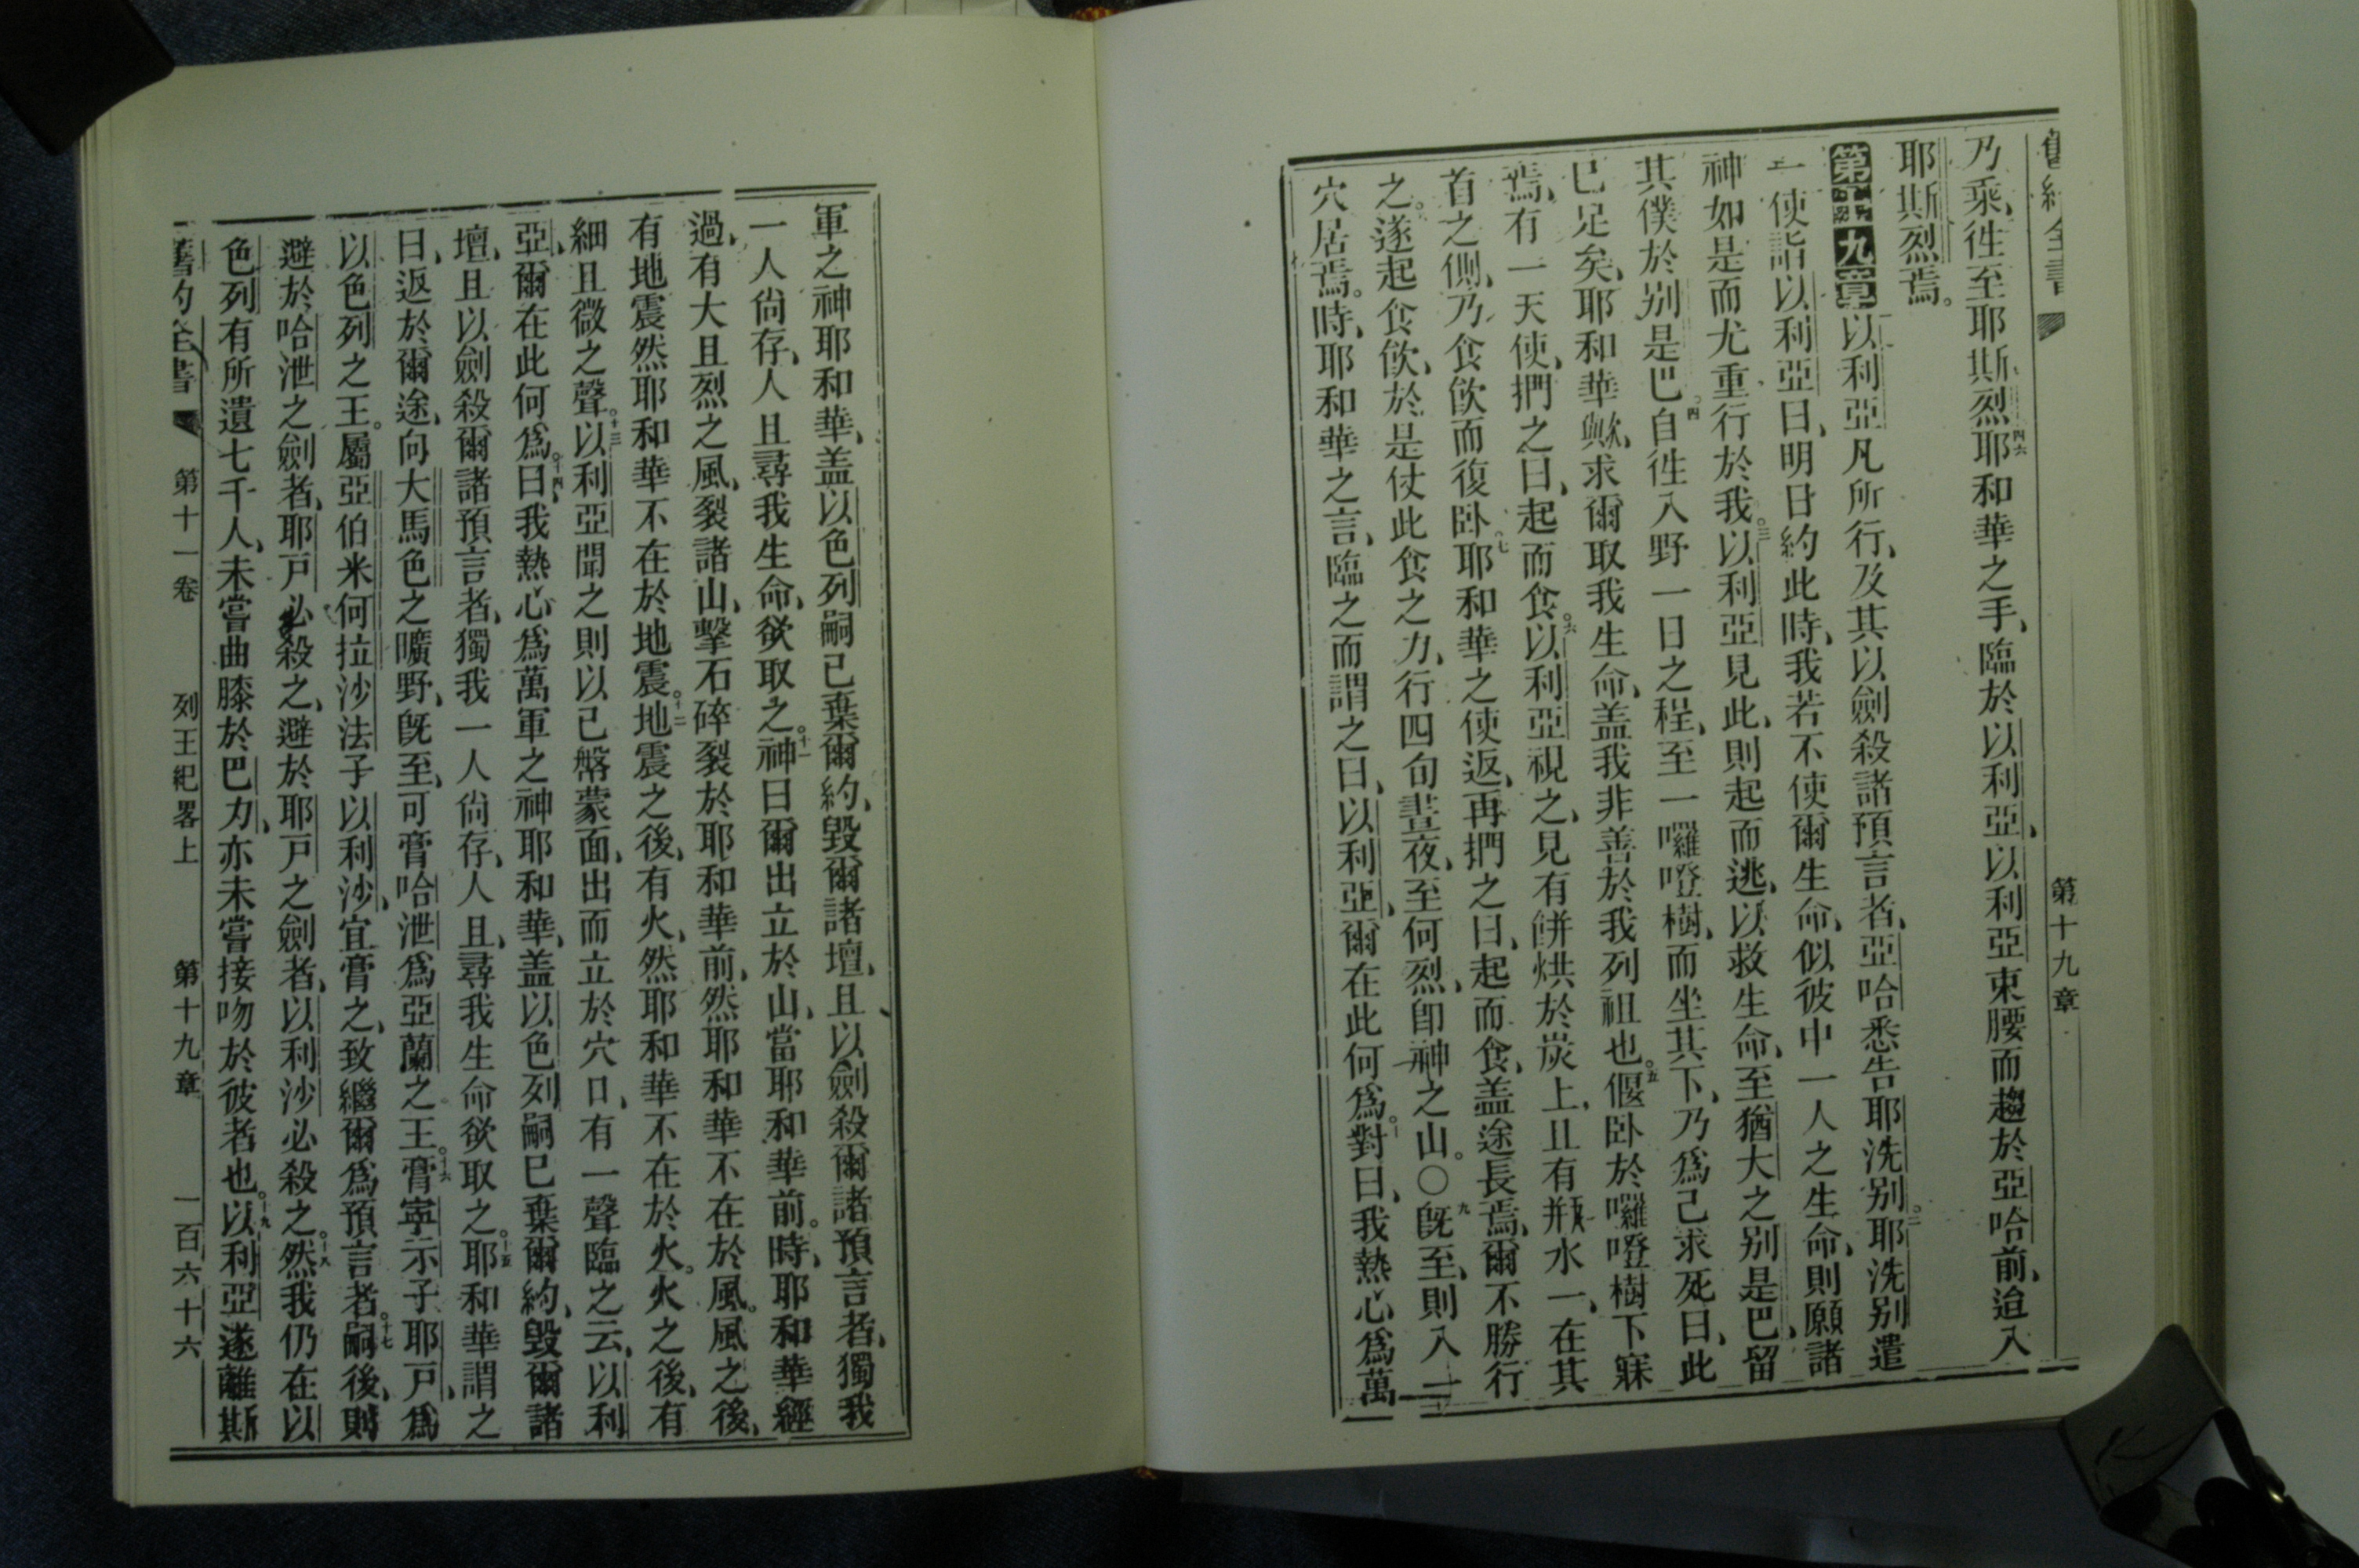 舊約全書 第十九章
乃乘、徃至耶斯烈、四六耶和華之手、臨於以利亞、以利亞束腰而趨於亞哈前、迨入
耶斯烈焉。
第十九章以利亞凡所行、及其以劍殺諸預言者、亞哈悉告耶洗別。二耶洗別遣
一使詣以利亞曰、明日約此時、我若不使爾生命、似彼中一人之生命、則願諸
神如是而尤重行於我。三以利亞見此、則起而逃、以救生命、至猶大之別是巴、留
其僕於別是巴。四自徃入野一日之程、至一囉噔樹、而坐其下、乃爲己求死曰、此
已足矣、耶和華歟、求爾取我生命、盖我非善於我列祖也。五偃卧於囉噔樹下寐
焉、有一天使、捫之曰、起而食。六以利亞視之、見有餅烘於炭上、且有瓶水一、在其
首之側、乃食飮而復卧。七耶和華之使返、再捫之曰、起而食、盖途長焉、爾不勝行
之。遂起食飮、於是仗此食之力、行四旬晝夜、至何烈、卽神之山。〇九旣至、則入一
穴居焉。時、耶和華之言、臨之而謂之曰、以利亞、爾在此何爲。十對曰、我熱心爲萬
軍之神耶和華、盖以色列嗣已棄爾約、毀爾諸壇、且以劍殺爾諸預言者、獨我
一人尙存、人且尋我生命、欲取之。十一神曰爾出立於山、當耶和華前。時、耶和華經
過、有大且烈之風、裂諸山、擊石碎裂於耶和華前、然耶和華不在於風。風之後、
有地震然耶和華不在於地震。十二地震之後、有火、然耶和華不在於火。火之後、有
細且微之聲。十三以利亞聞之則以己幣蒙面、出而立於穴口、有一聲臨之云、以利
亞、爾在此何爲。十四曰、我熱心爲萬軍之神耶和華、盖以色列嗣已棄爾約、毀爾諸
壇、且以劍殺爾諸預言者、獨我一人尙存、人且、尋我生命欲取之。十五耶和華謂之
曰、返於爾途、向大馬色之曠野、旣至、可膏哈泄爲亞蘭之王。十六膏寧示子耶戶、爲
以色列之王。屬亞伯米何拉沙法子以利沙、宜膏之、致繼爾爲預言者。十七嗣後、則
避於哈泄之劍者、耶戶必殺之、避於耶戶之劍者、以利沙必殺之。十八然我仍在以
色列有所遺七千人、未嘗曲膝於巴力、亦未嘗接吻於彼者也。十九以利亞遂離斯
舊約全書 第十一卷 列王紀畧上 第十九章 一百六十六